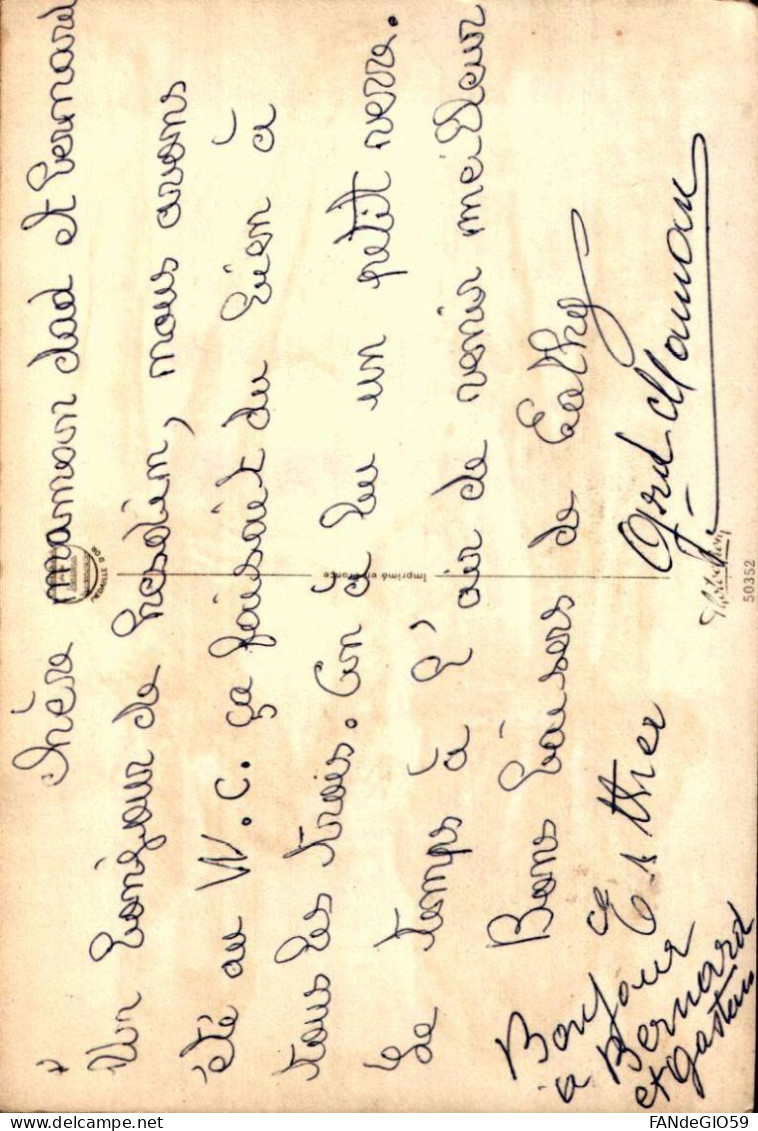 chère maman dad et bernard
Un bonjour de hesdin, nous avons
été au W.C. ça faisait du bien à
tous les trois. On à bu un petit verre.
Le temps à l'air de venir meilleur
Bons baisers de Cathy
Esther
Grd Maman
Bonjour
à Bernard
et Gaston
Imprimé en France
MEDAILLE D'OR
50352
FANdeGIO59